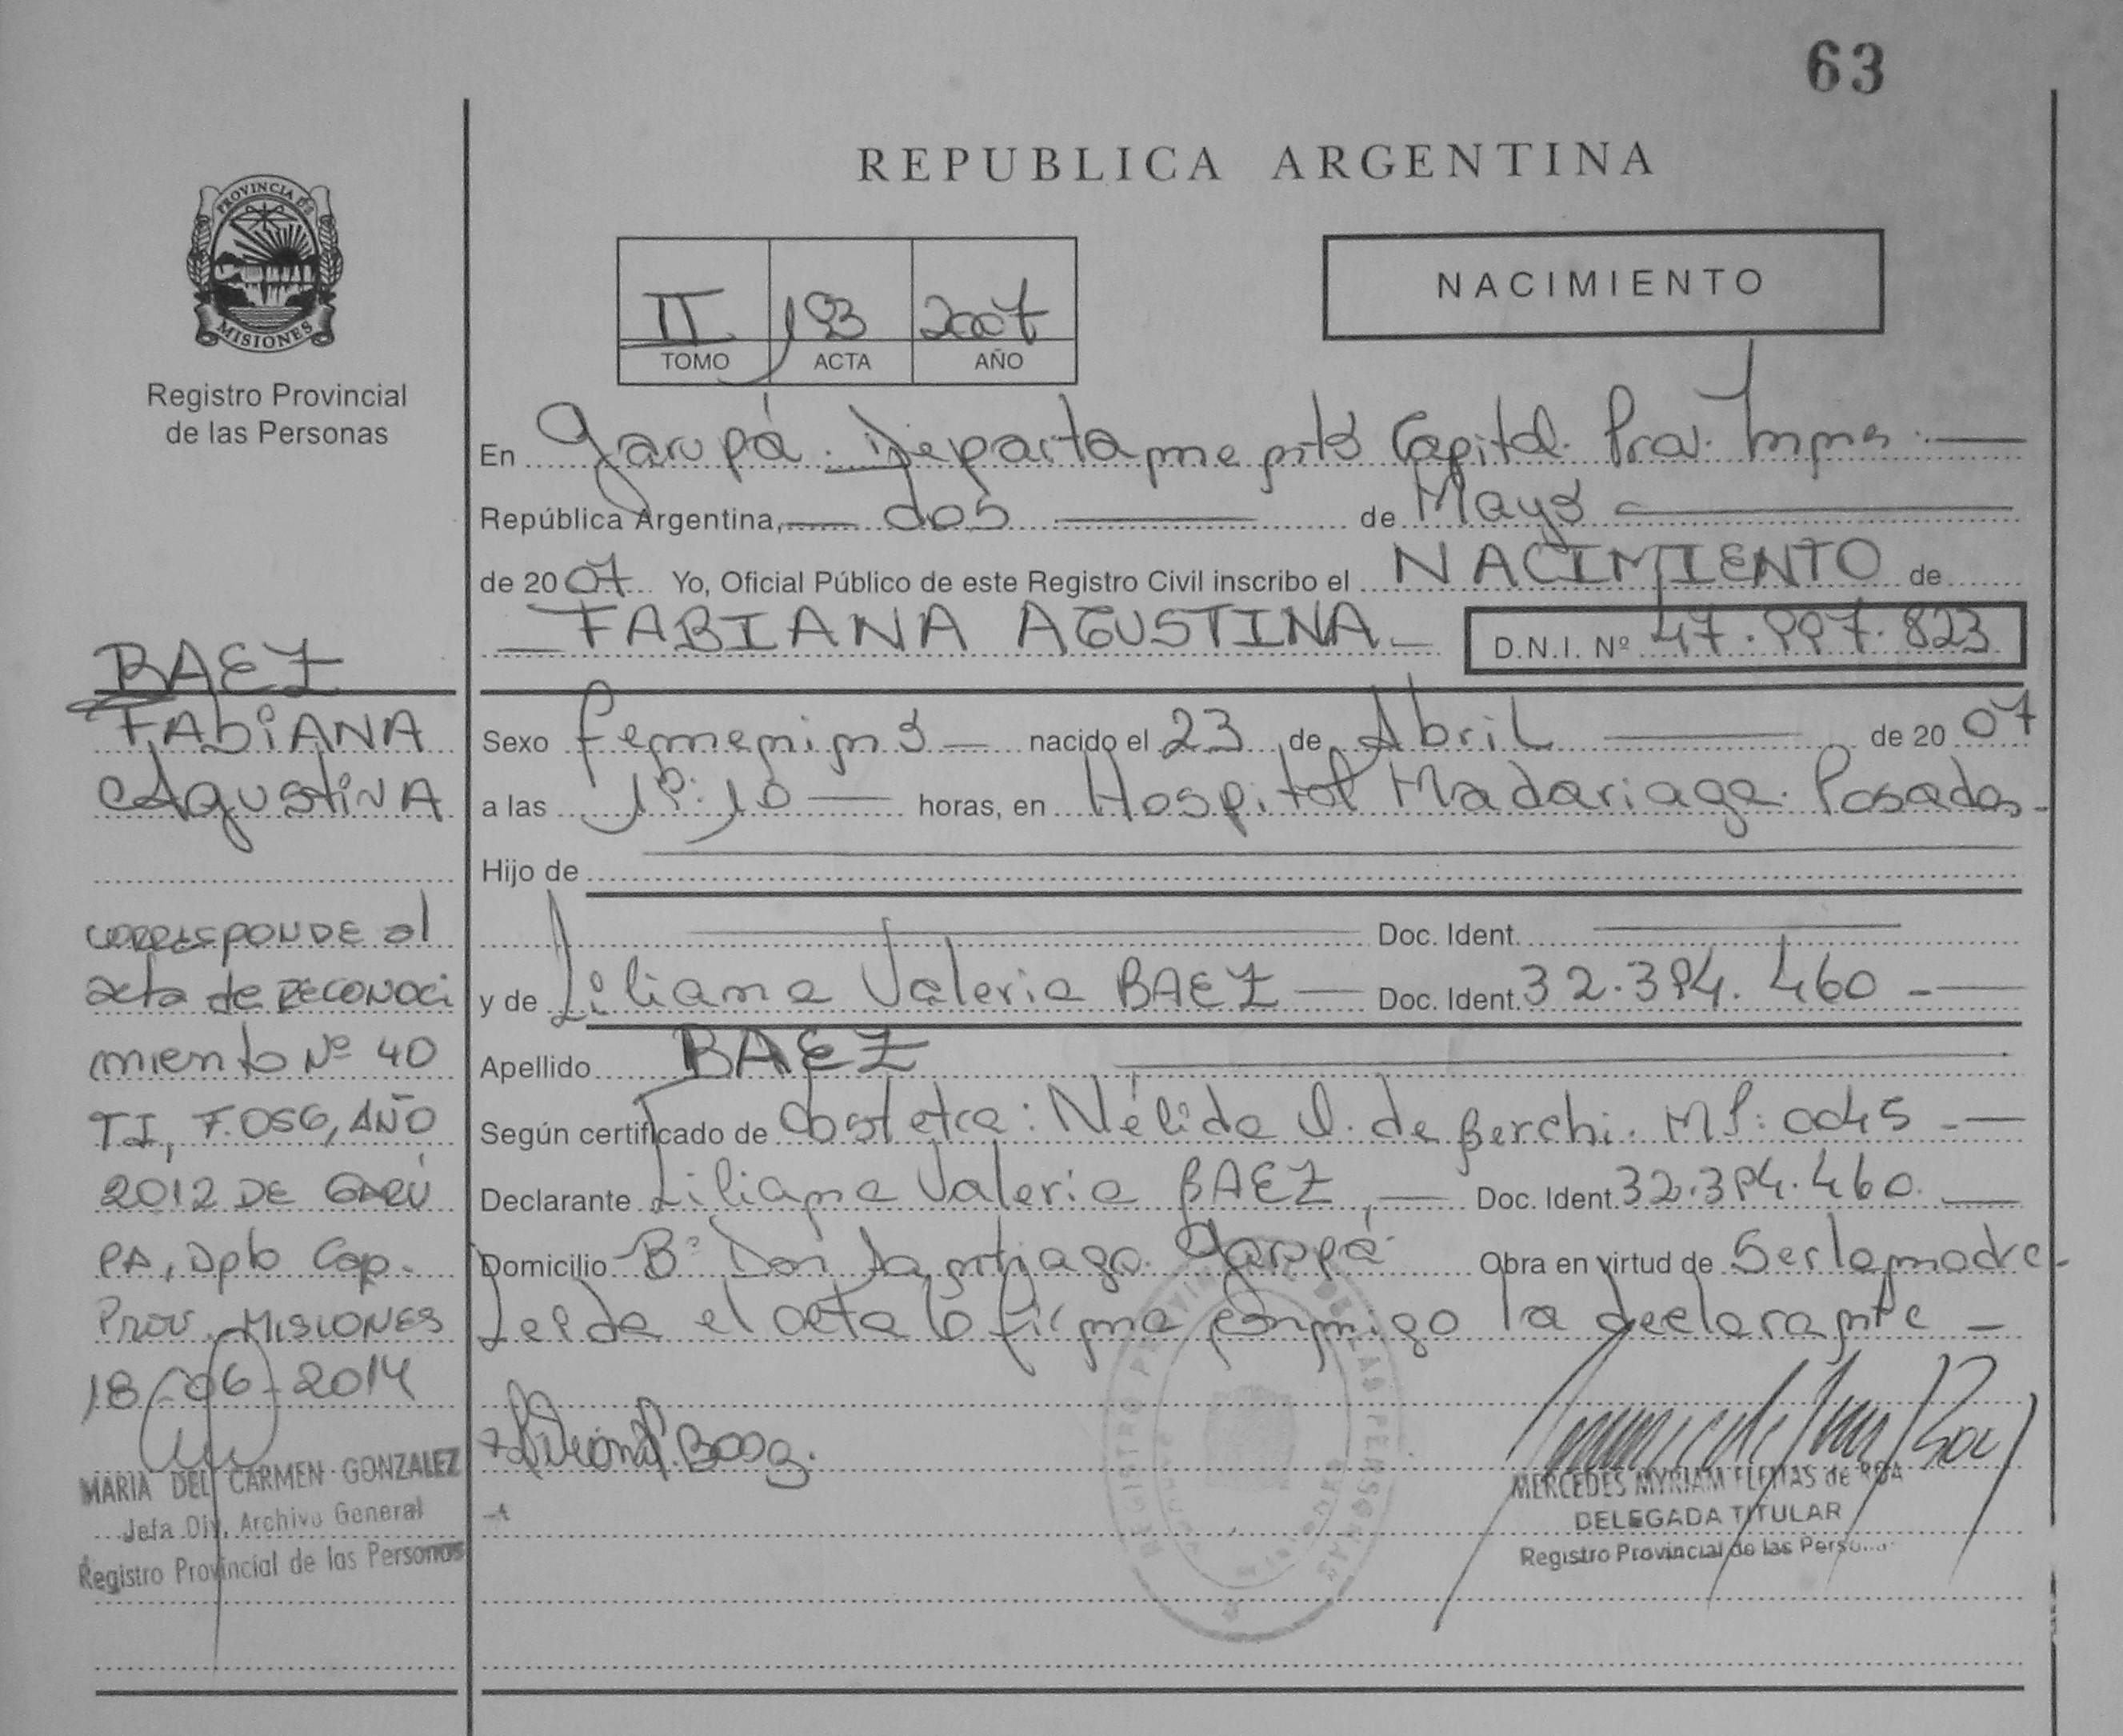 63
REPUBLICA ARGENTINA
PROVINCIA DE
MISIONES
Registro Provincial
de las Personas
II 193 2007
TOMO ACTA AÑO
NACIMIENTO
En Garupá. Departamento Capital. Prov. Mnes
República Argentina, dos de Mayo
de 2007 Yo, Oficial Público de este Registro Civil inscribo el NACIMIENTO de
FABIANA AGUSTINA D.N.I. Nº 47.997.823
Sexo femenino nacido el 23 de Abril de 2007
a las horas, en Hospital Madariaga. Posadas
Hijo de
Doc. Ident.
y de Liliana Valeria BAEZ Doc. Ident. 32.394.460
Apellido BAEZ
Según certificado de Obstetra: Nélida de Berchi. MP: 0045
Declarante Liliana Valeria BAEZ Doc. Ident. 32.394.460
Domicilio Bº Don Santiago. Garupá Obra en virtud de Ser la madre
Leida el acta la firma conmigo la declarante
BAEZ
FAbiANA
AgustiNA
corresponde al
acta de reconoci
miento Nº 40
TI, F.056, AÑO
2012 DE GARU
PA, Dpto Cap.
Prov. Misiones
18-06-2014
MARIA DEL CARMEN GONZALEZ
Jefa Div. Archivo General
Registro Provincial de las Personas
MERCEDES MYRIAM FLEITAS de ROA
DELEGADA TITULAR
Registro Provincial de las
REGISTRO PROVINCIAL DE LAS PERSONAS